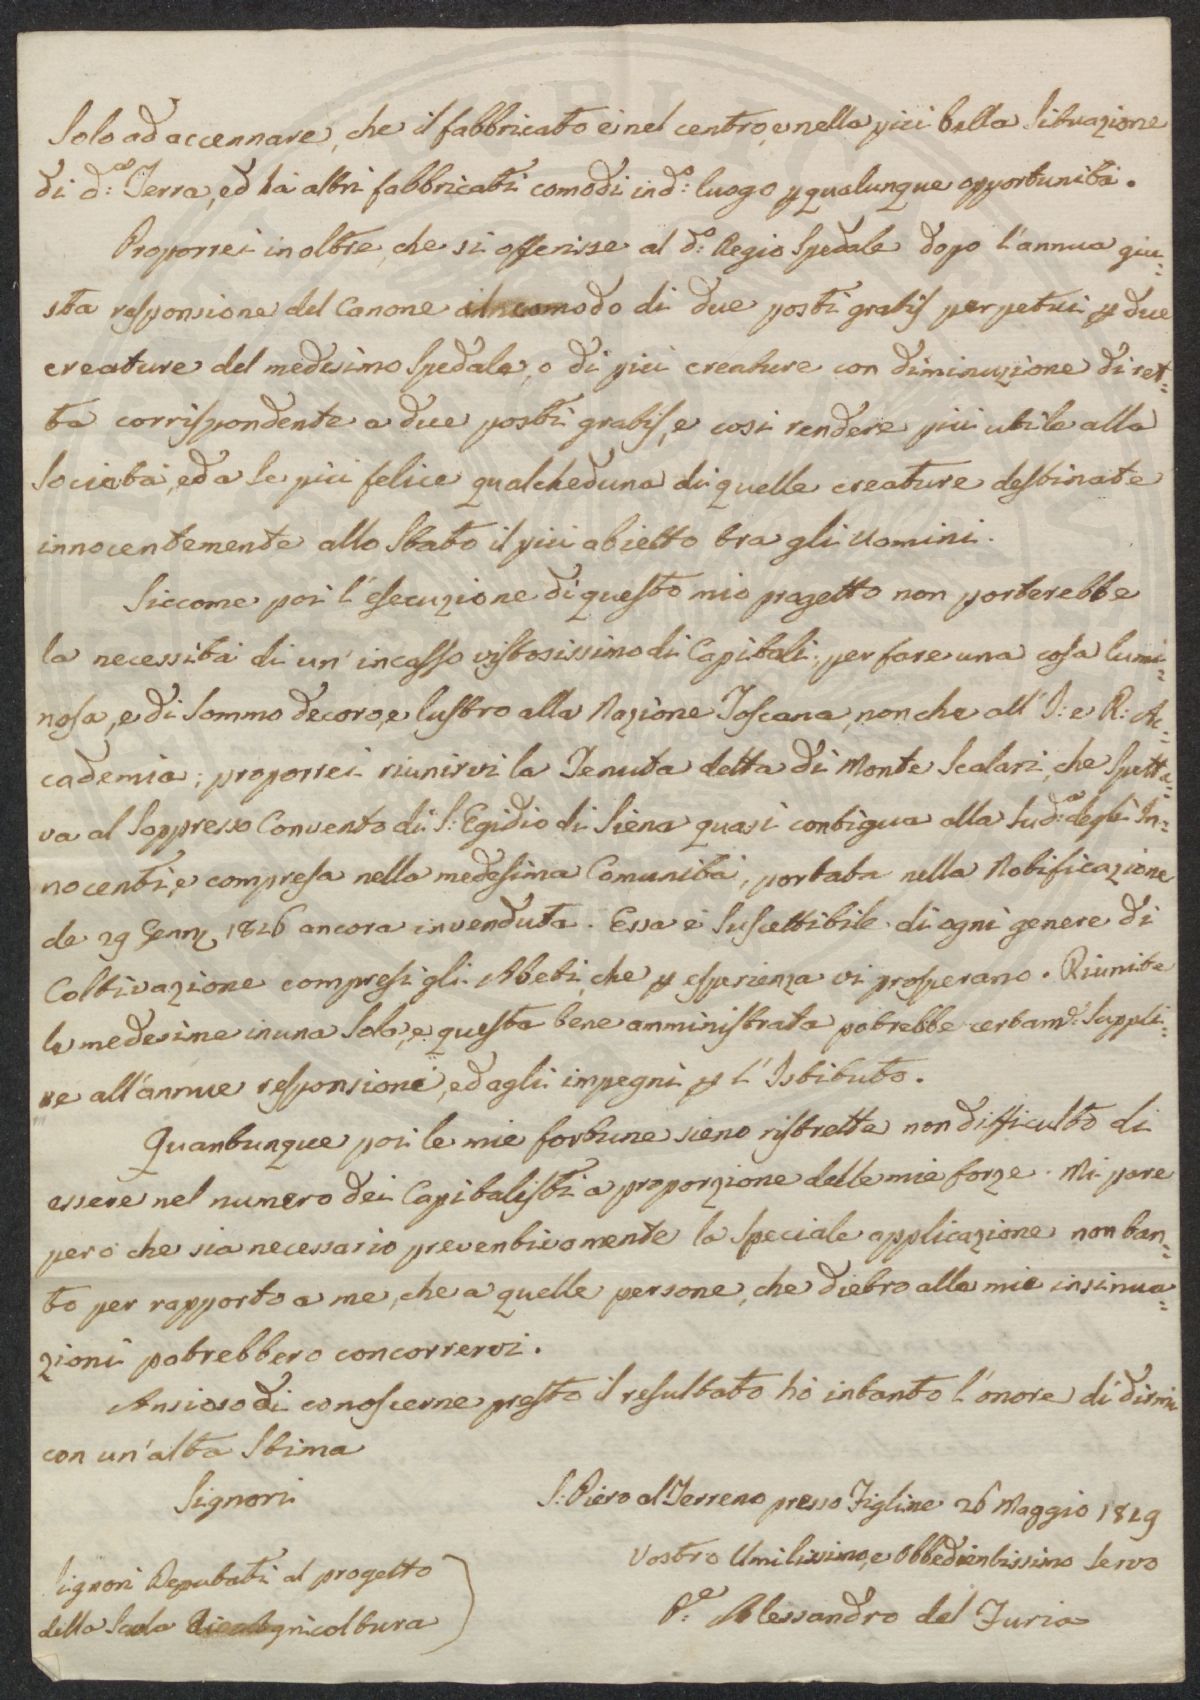 Solo ad accennare, che il fabbricato è nel centro, e nella più bella Situazione
di d:ᵃ Terra, ed hà altri fabbricati comodi in d:ᵒ luogo p qualunque opportunità.
Proporrei inoltre, che si offerisse al d:ᵒ Regio Spedale dopo l'annua giu=
sta responsione del Canone il comodo di due posti gratis perpetui p due
creature del medesimo Spedale, o di più creature con diminuzione di ret=
ta corrispondente a due posti gratis, e così rendere più utile alla
Società, ed a se più felice qualcheduna di quelle creature destinate
innocentemente allo Stato il più abietto tra gli Uomini.
Siccome poi l'esecuzione di questo mio progetto non porterebbe
la necessità di un' incasso vistosissimo di Capitali, per fare una cosa lumi=
nosa, e di Sommo decoro, e lustro alla Nazione Toscana, non che all' I: e R: Ac=
cademia; proporrei riunirvi la Tenuta detta di Monte Scalari, che Spetta=
va al Soppresso Convento di S: Egidio di Siena quasi contigua alla Sud:ᵃ degli In=
nocenti, e compresa nella medesima Comunità, portata nella Notificazione
de 29 Genn 1826 ancora invenduta. Essa è Suscettibile di ogni genere di
Coltivazione compresi gli Abeti, che p esperienza vi prosperano. Riunite
le medesime in una Sola, e questa bene amministrata potrebbe certam: Suppli=
re all'annue responsioni, ed agli impegni p l'Istituto.
Quantunque poi le mie fortune sieno ristrette non difficulto di
essere nel numero dei Capitalisti a proporzione delle mie forze. Mi pare
però che sia necessario preventivamente la Speciale applicazione non tan=
to per rapporto a me, che a quelle persone, che dietro alle mie insinua=
zioni potrebbero concorrervi.
Ansioso di conoscerne presto il resultato hò intanto l'onore di dirmi
con un'alta Stima
Signori
S: Piero al Terreno presso Figline 26 Maggio 1829
Vostro Umilissimo, e Obbedientissimo Servo
P:ᵉ Alessandro del Turia
Signori Deputati al progetto
della Scuola di Agricoltura